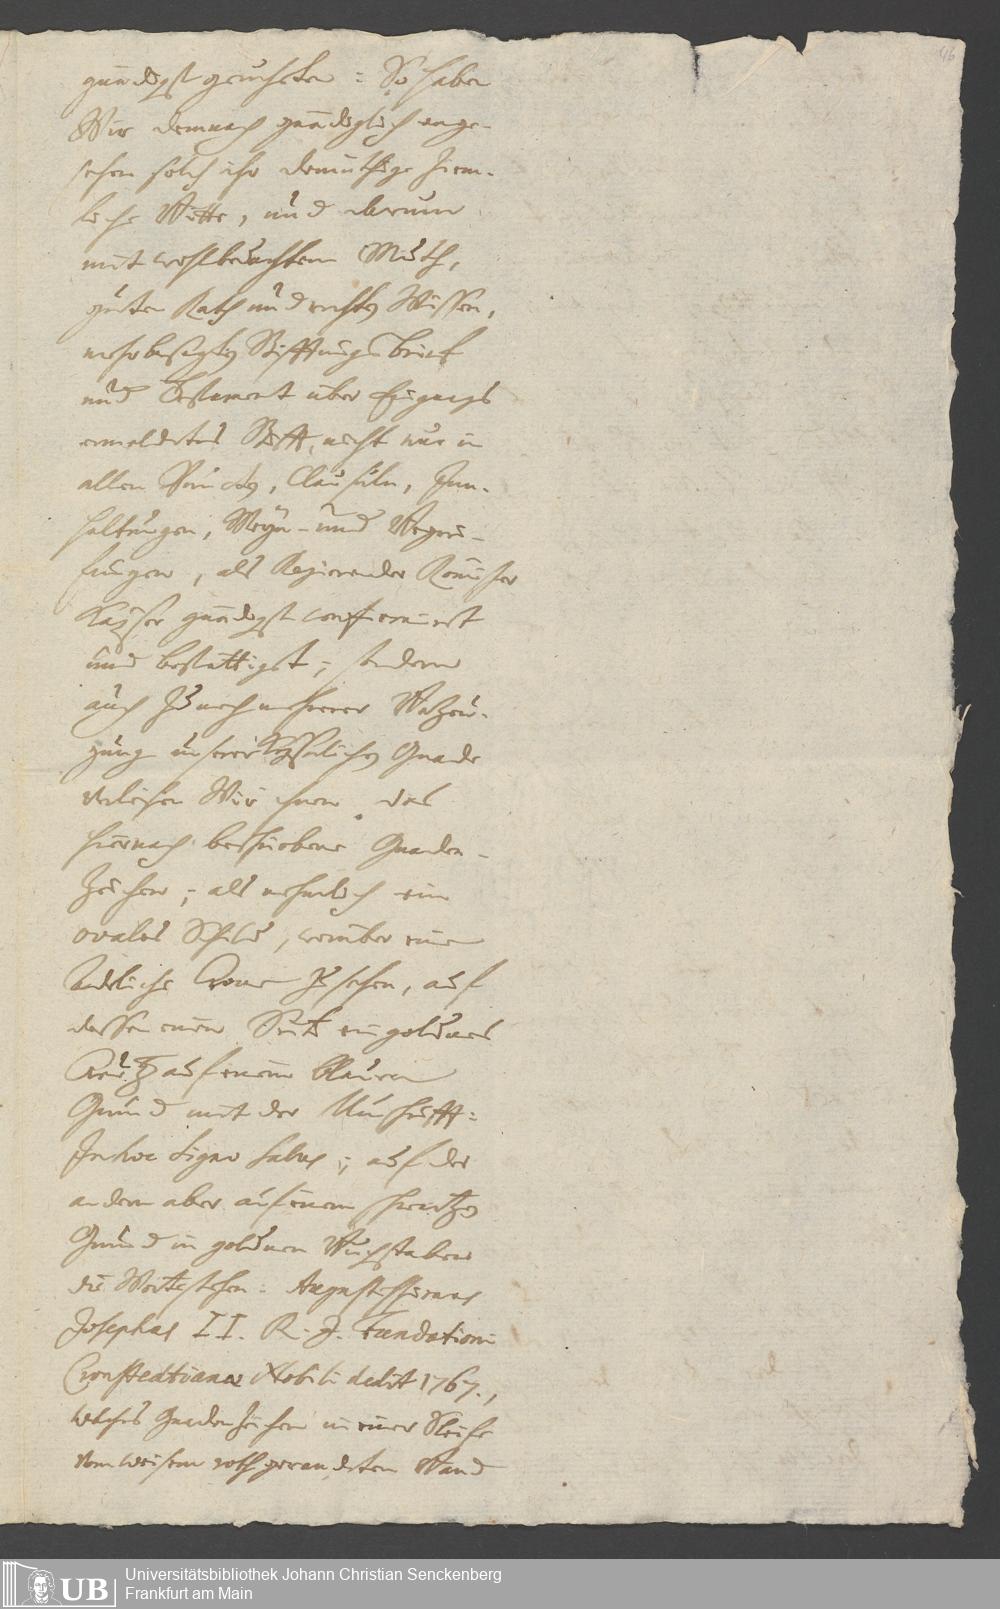 gnädigst geruheten: So haben
Wir demnach gnädiglich ange-
sehen solch ihr demüthige ziem-
liche Bitte, und darum
mit wohlbedachtem Muth,
guten Rath und rechten Wissen,
mehrbesagten Stifftungs brief
und Testament über Eingangs
ermeldetes Stifft, nicht nur in
allen Puncten, Clausuln, Inn-
haltungen, Meyn- und Begrei-
fungen, als Regierender Römischer
Kayser gnädigst confirmirt
und bestättiget; sondern
auch zu noch mehrerer Bezeu-
gung unserer Kayserlichen Gnade
verleihen Wir ihnen das
hiernach beschriebene Gnaden-
Zeichen; als nehmlich ein
ovales Schild, worüber eine
Adeliche Crone zu sehen, auf
dessen einen Seite ein goldenes
Creutz auf einem blauen
Grund mit der Umschrifft:
In hoc signo salus; auf der
andern aber auf einem schwartzen
Grund in goldenen Buchstaben
die Worte stehen: Augustissimus
Josephus II. R. I. Fundationi
Cronstedtianae Nobili dedit 1767.,
welches Gnadenzeichen in einer Schleife
von weisem roth gerandeten Band
46
UB
Universitätsbibliothek Johann Christian Senckenberg
Frankfurt am Main